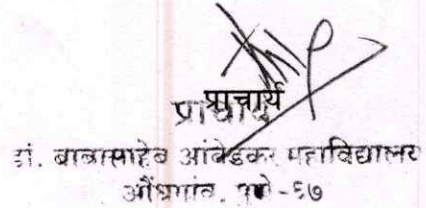 प्राचार्य
डॉ. बाबासाहेब आंबेडकर महाविद्यालय
औंधगांव, पुणे-६७